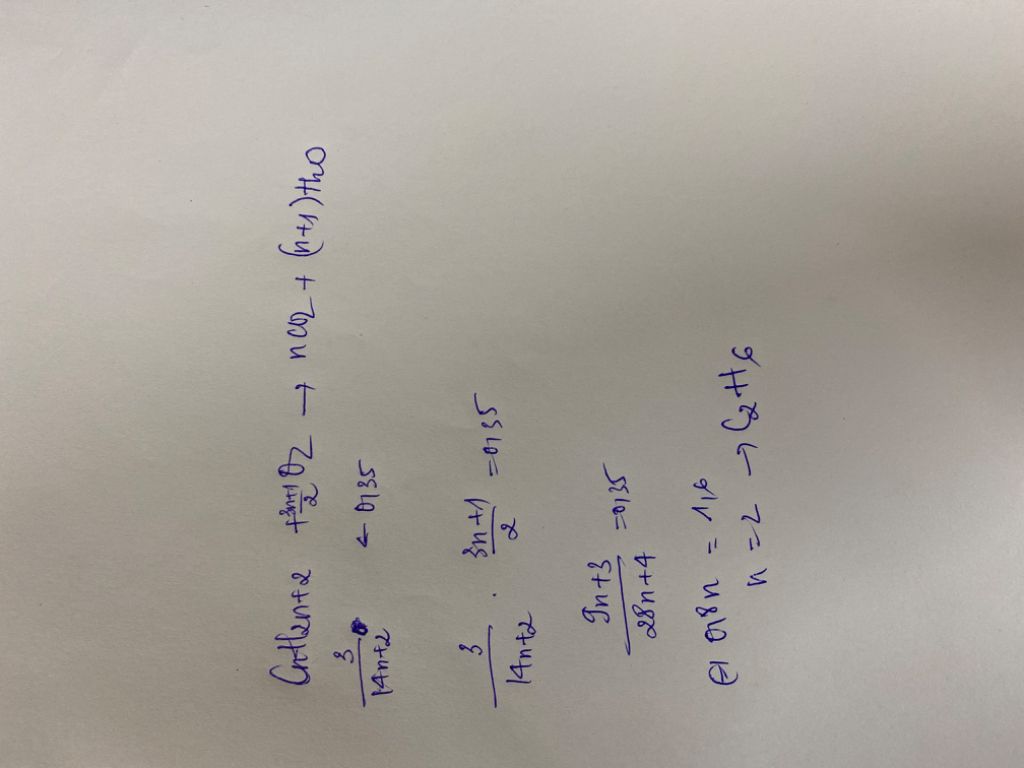 CnH2n+2 + 3n+1/2 O2 → nCO2 + (n+1)H2O
3/14n+2 ← 0,35
3/14n+2 . 3n+1/2 = 0,35
9n+3/28n+4 = 0,35
⇔ 0,8n = 1,6
n = 2 → C2H6